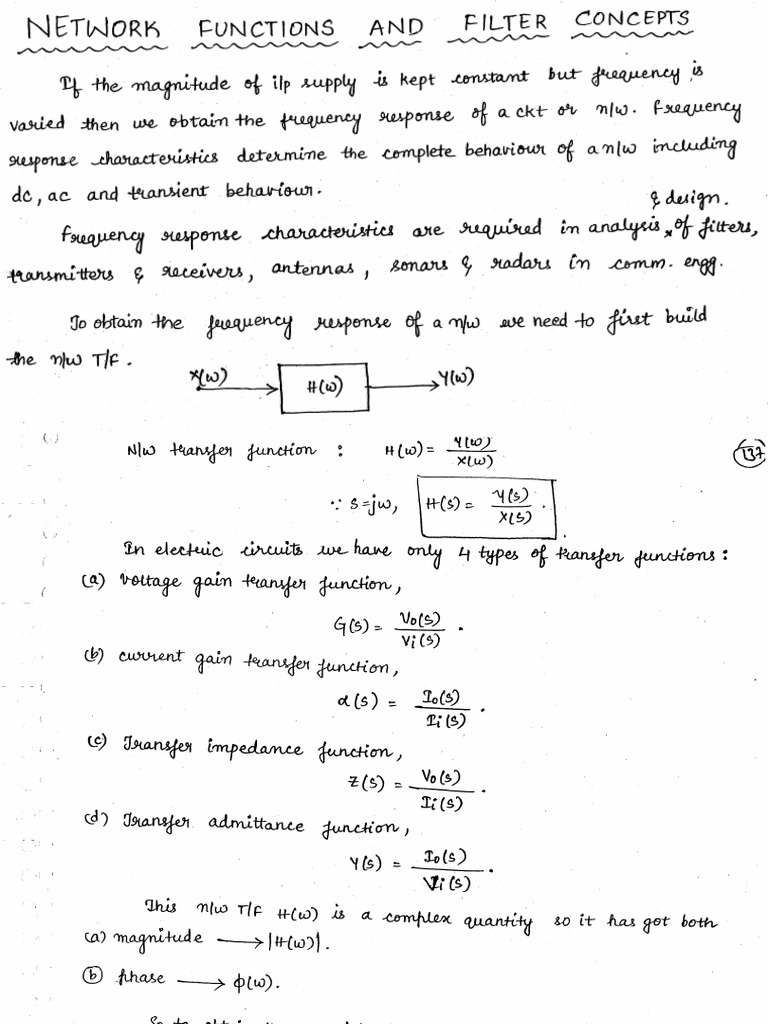 NETWORK FUNCTIONS AND FILTER CONCEPTS
If the magnitude of i/p supply is kept constant but frequency is
varied then we obtain the frequency response of a ckt or n/w. Frequency
response characteristics determine the complete behaviour of a n/w including
dc, ac and transient behaviour.
& design.
Frequency response characteristics are required in analysis × of filters,
transmitters & receivers, antennas, sonars & radars in comm. engg.
To obtain the frequency response of a n/w we need to first build
the n/w T/F.
X(ω) H(ω) Y(ω)
N/w transfer function : H(ω) = Y(ω)/X(ω)
137
∵ s=jω, H(s) = Y(s)/X(s).
In electric circuits we have only 4 types of transfer functions :
(a) Voltage gain transfer function,
G(s) = Vo(s)/Vi(s).
(b) current gain transfer function,
α(s) = Io(s)/Ii(s).
(c) Transfer impedance function,
Z(s) = Vo(s)/Ii(s).
(d) Transfer admittance function,
Y(s) = Io(s)/Vi(s).
This n/w T/F H(ω) is a complex quantity so it has got both
(a) magnitude → |H(ω)|.
(b) phase → ϕ(ω).
So to obtain